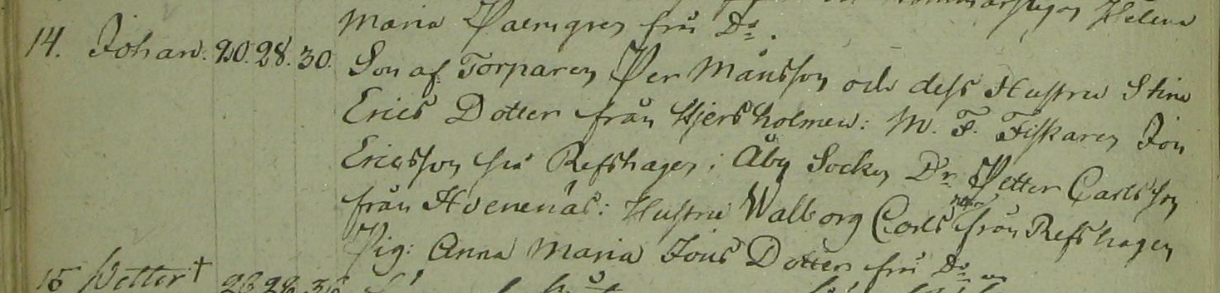 Helena
Maria Palmgren frå Do.
14. Johan. 20. 28. 30. Son af Torparen Per Månsson och dess Hustru Stina
Erics Dotter från Hjersholmen: M. F. Fiskaren Jon
Ericsson frå Refshagen i Åby Socken Dr. Petter Carlsson
från Hvenenäs: Hustru Walborg Carls dotter från Refshagen
Pig: Anna Maria Jons Dotter frå Do
15 Petter †